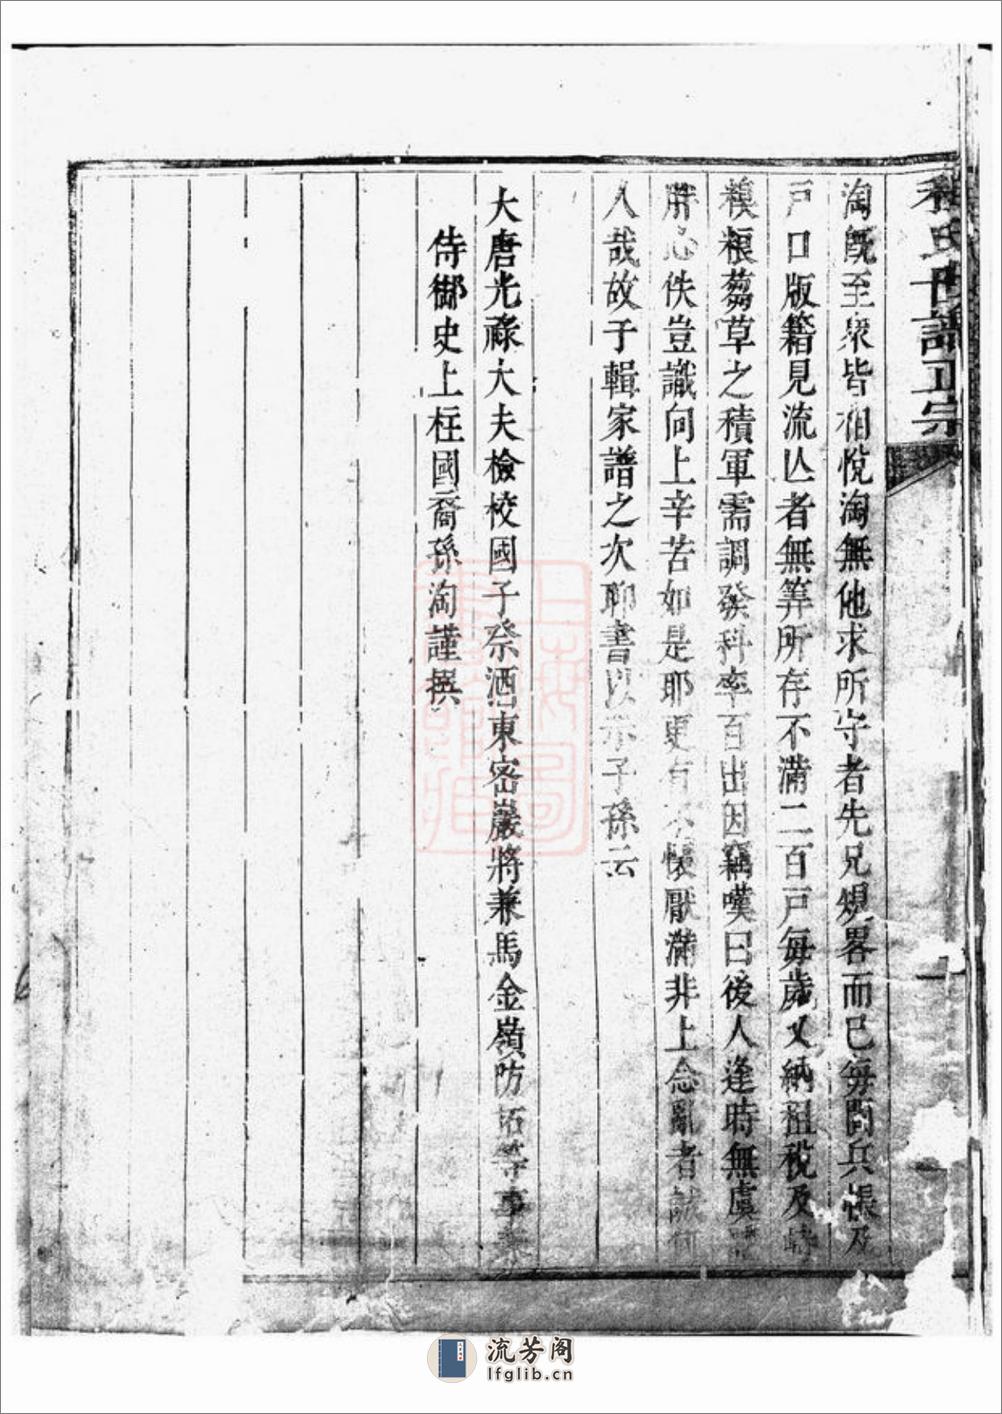 程氏世譜正宗
十
淘既至衆皆相悅淘無他求所守者先兄規畧而已每閱兵帳及
戶口版籍見流亾者無筭所存不滿二百戶每歲又納租稅及
糗粮蒭草之積軍需調發科率百出因竊嘆曰後人逢時無虞
胖心佚豈識向上辛苦如是耶更有不懷厭滿非上念亂者誠何
人哉故于輯家譜之次聊書以示子孫云
大唐光祿大夫檢校國子祭酒東密巖將兼馬金嶺防拓等事兼
侍御史上柱國裔孫淘謹撰
上海圖書館藏
流芳阁
lfglib.cn